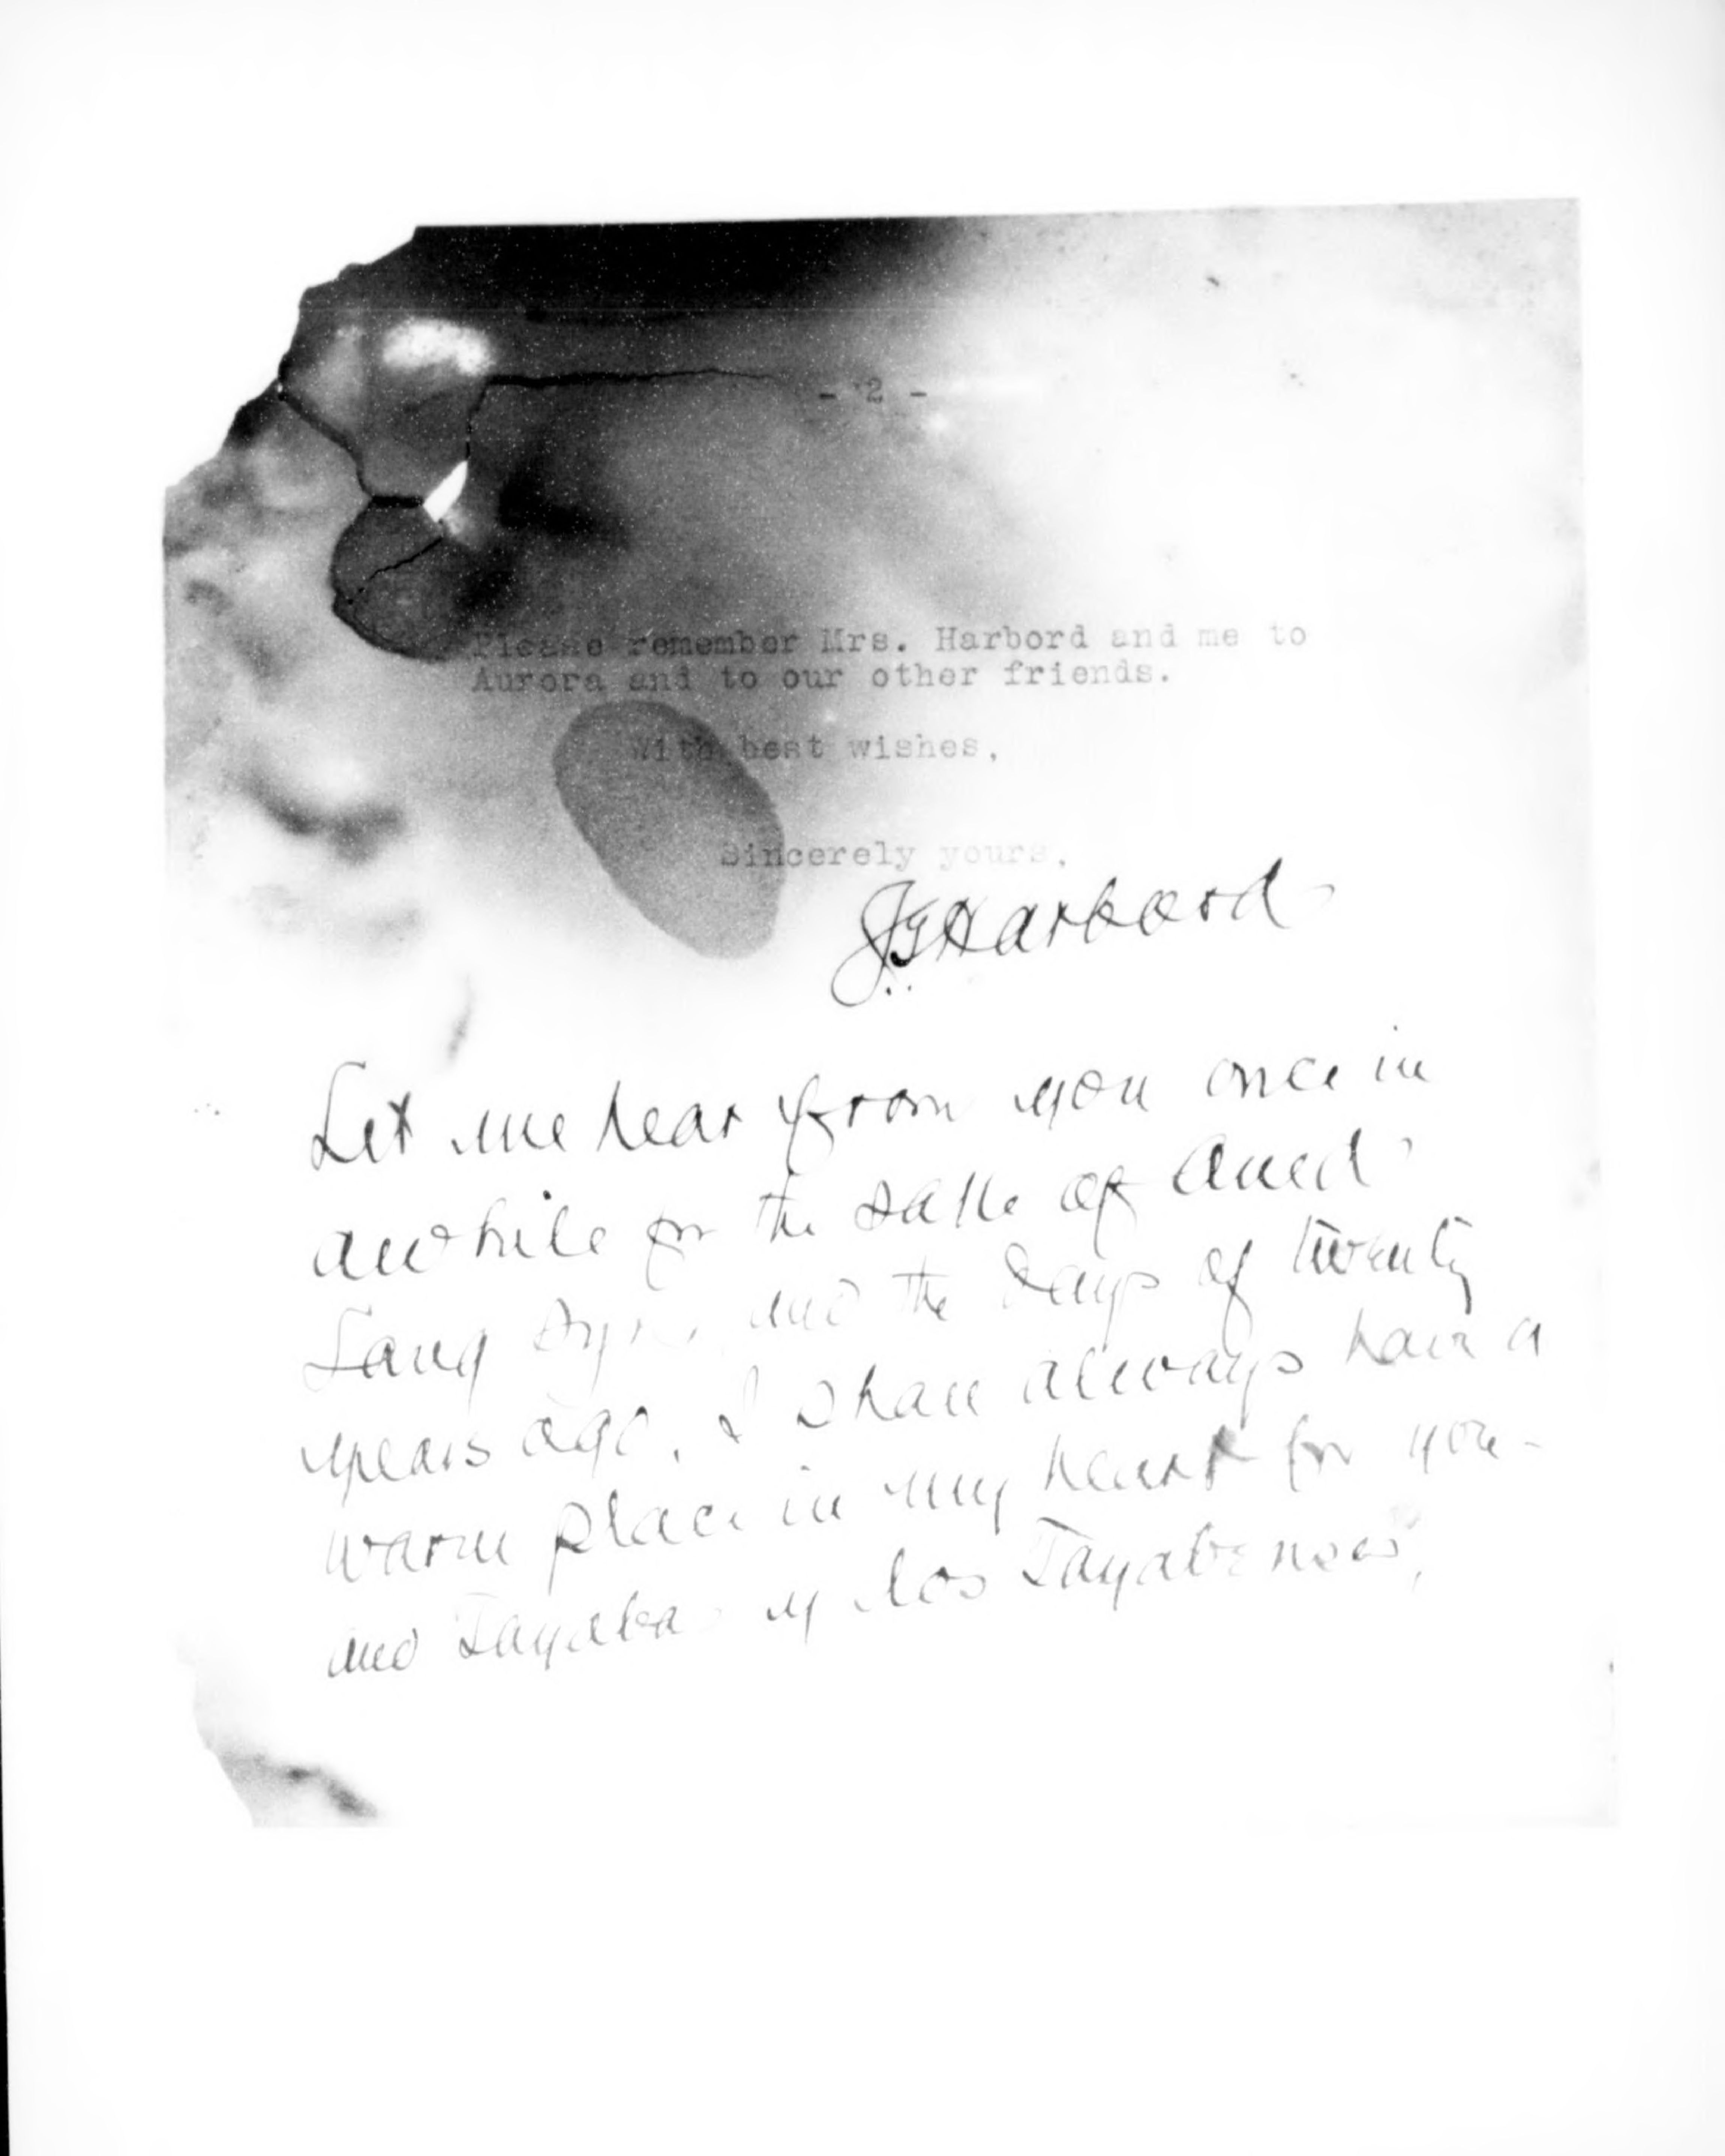 - 2 -
Please remember Mrs. Harbord and me to
Aurora and to our other friends.
With best wishes,
Sincerely yours,
J G Harbord
Let me hear from you once in
awhile for the sake of Auld
Lang Syne, and the days of twenty
years ago. I shall always have a
warm place in my heart for you -
and Tayaba y los Tayabenses,